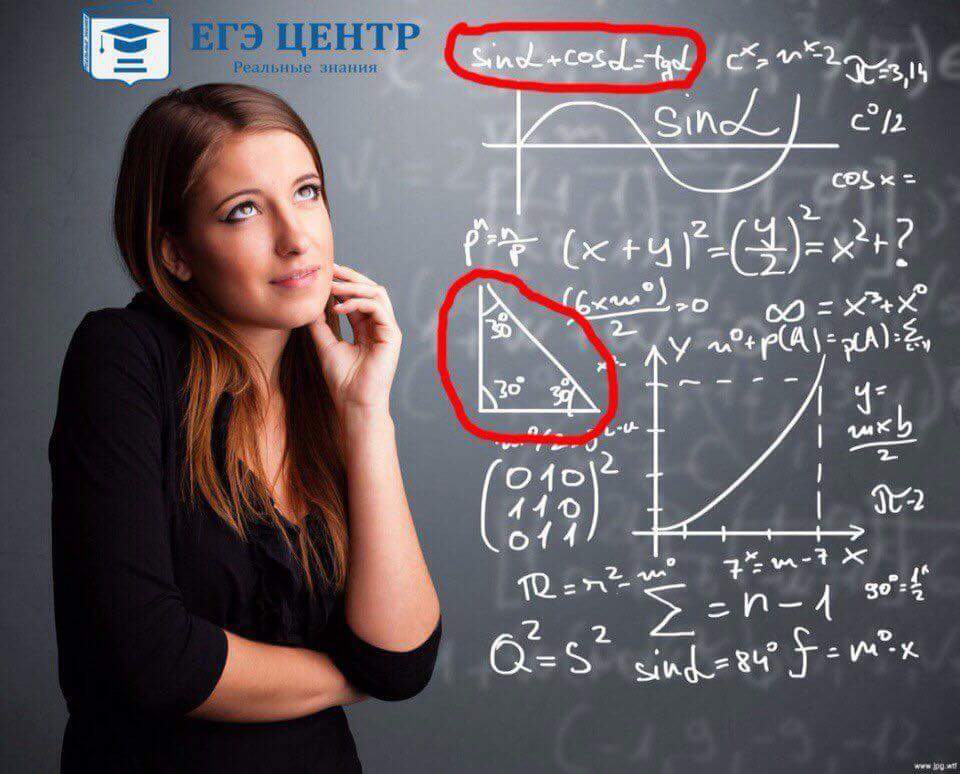 ЕГЭ ЦЕНТР
Реальные знания
sinα + cosα = tgα
cˣ = nˣ = 2
π = 3,14
sinα
c⁰/2
cos x =
pⁿ = n/p
(x + y)² = (y/2)² = x² + ?
(6xm⁰)/2 = 0
∞ = x³ + x⁰
30°
30°
30°
y
n⁰ + p(A) = p(A) =
y =
mxb/2
π = 2
(010
110
011)²
7ˣ = m - 7
x
R = r² - m⁰
∑ = n - 1
90° = 1/2
Q² = S²
sinα = 84°
f = m⁰ · x
www.jpg.wtf